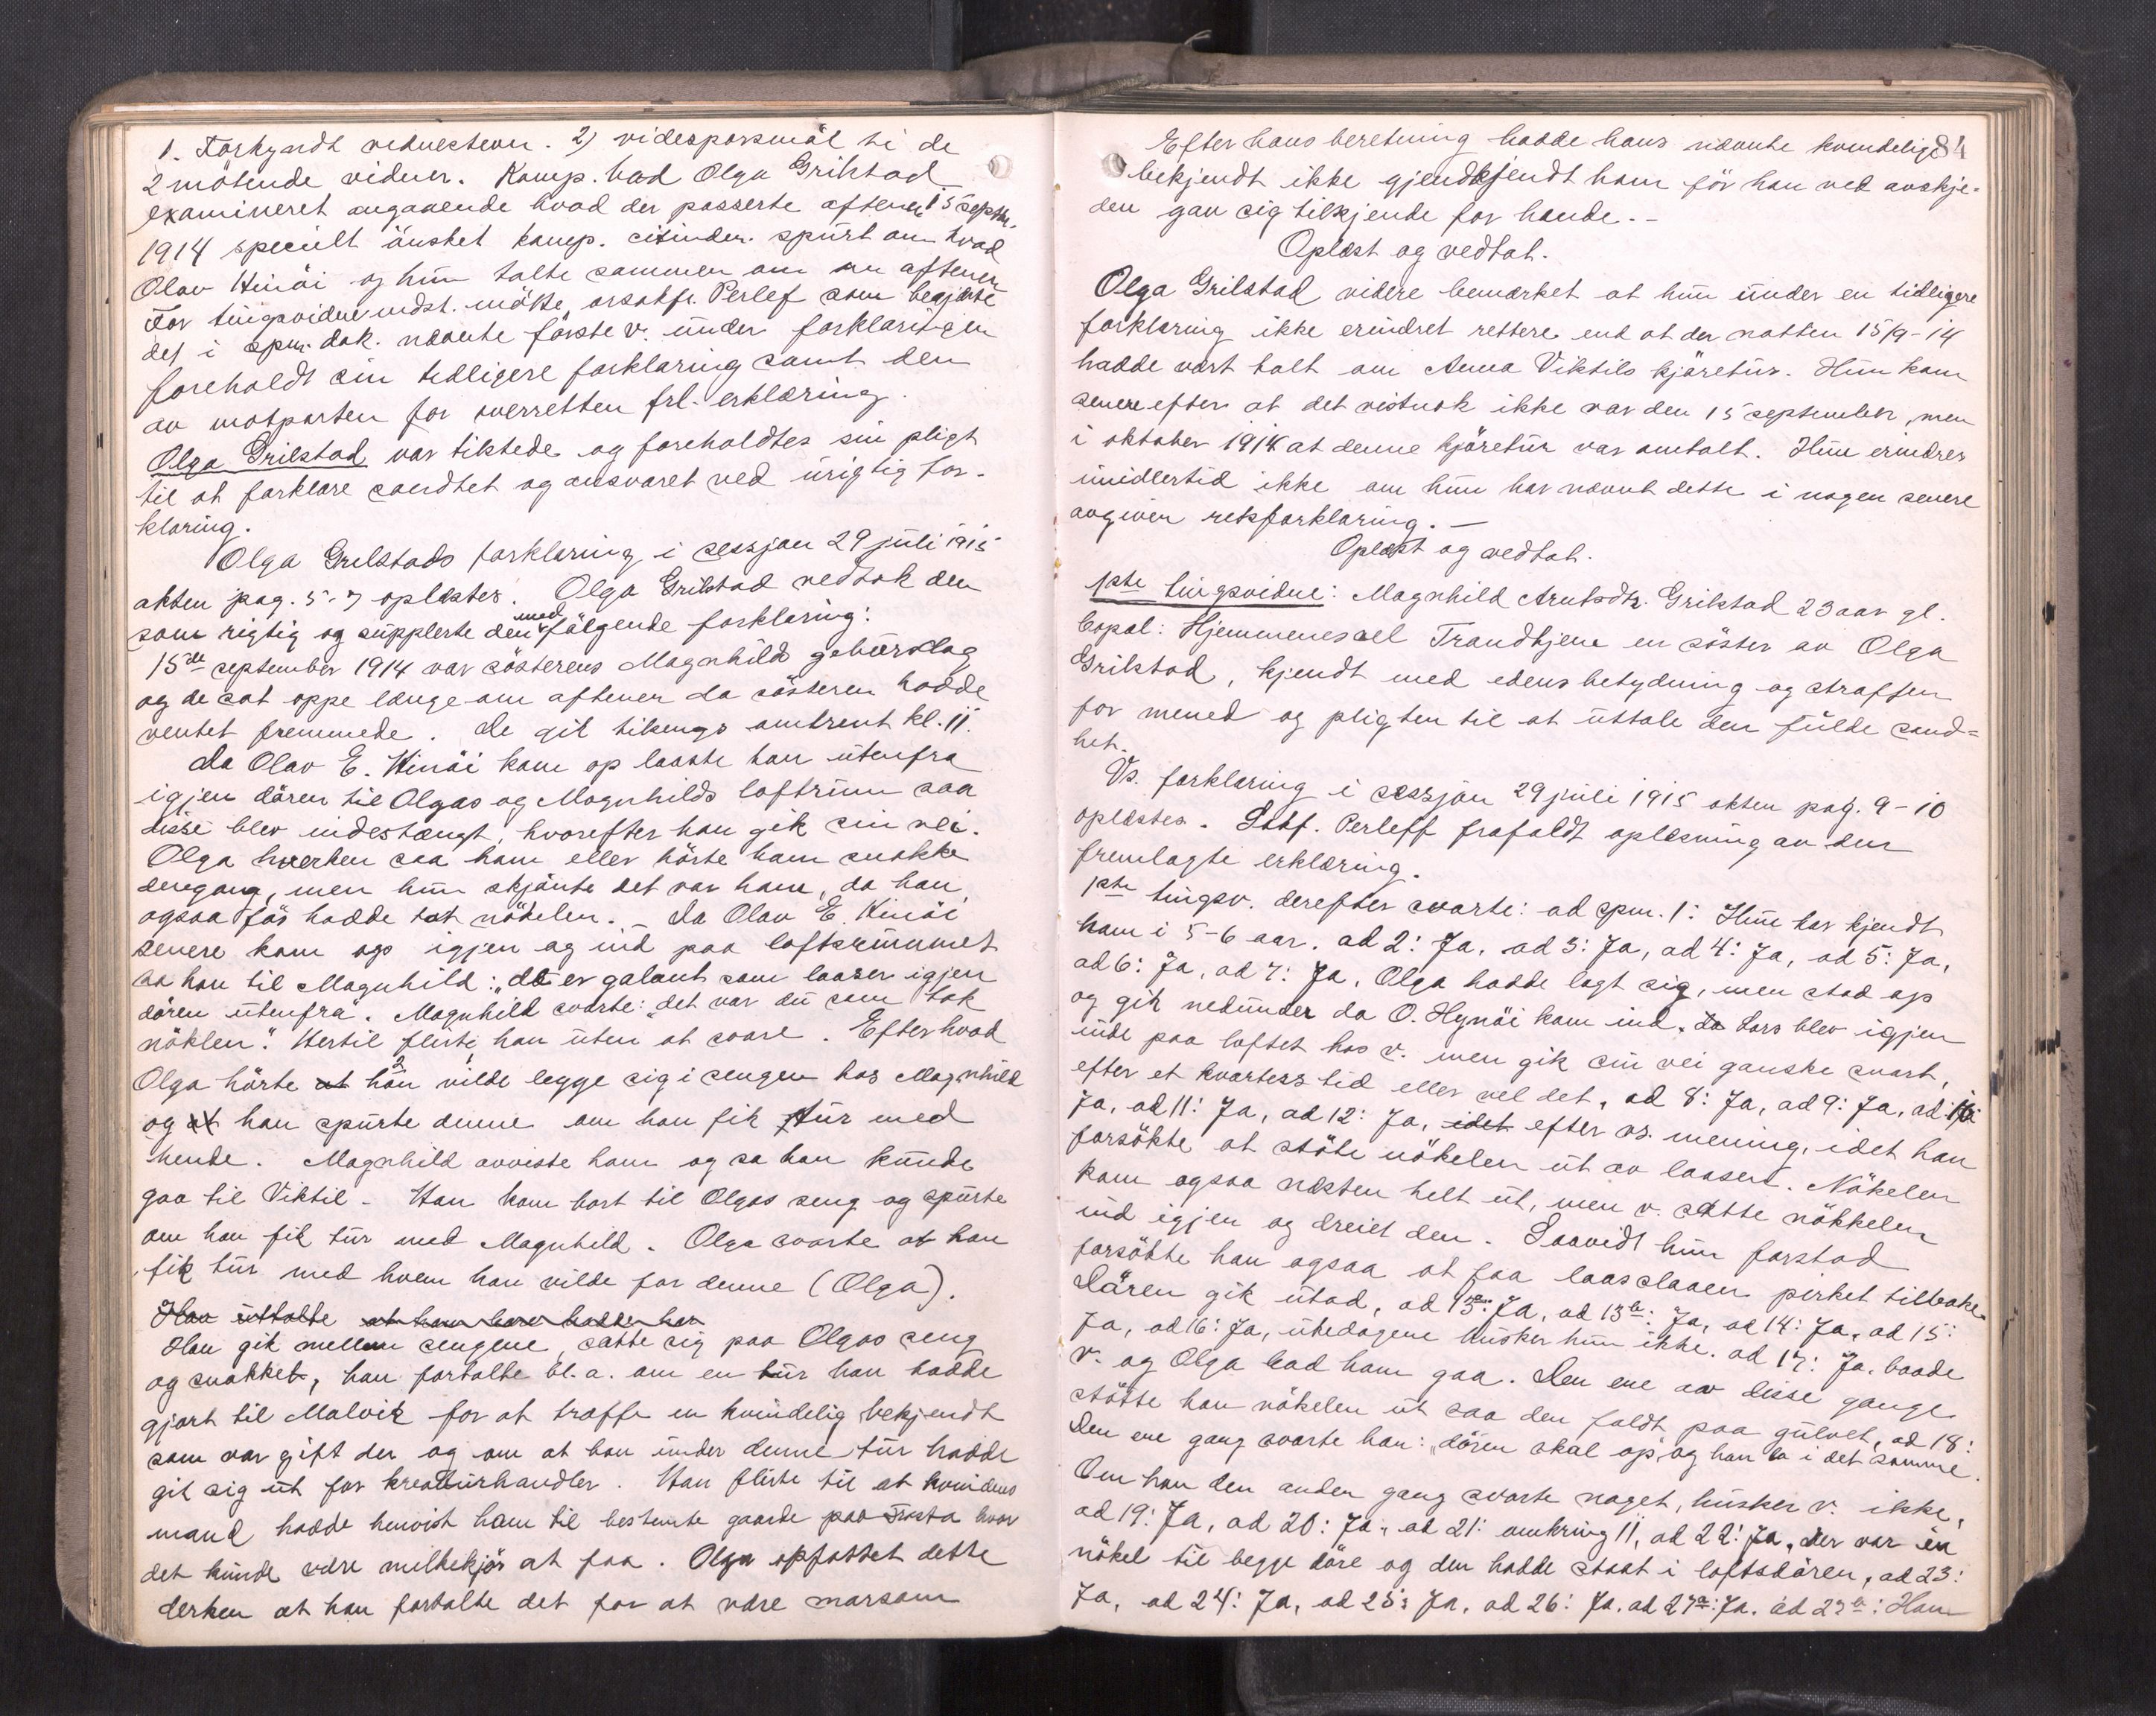 1. Forkyndt vidnestevn. 2) videspørsmål ti de
2 møtende vidner. Komp. bad Olga Grilstad
examineret angaaende hvad der passerte aftenen 15 septbr.
1914 specielt ønsket komp. citinden. spurt om hvad
Olav Hinøi og hun talte sammen om den aftenen
For tingsvidne indst. møtte, orsakfr. Perlef som begjærte
det i spm. dok. nævnte første v. under forklaringen
foreholdt sin tidligere forklaring samt den
av motparten for overretten frl. erklæring.
Olga Grilstad var tilstede og foreholdtes sin pligt
til at forklare sandhet og ansvaret ved urigtig for-
klaring.
Olga Grilstads forklaring i sessjon 29 juli 1915
akten pag. 5-7 oplæstes. Olga Grilstad vedtok den
som rigtig og supplerte den med følgende forklaring:
15de september 1914 var søsterens Magnhilds gebursdag
og de sat oppe længe om aftenen da søsteren hadde
ventet fremmede. De gik tilsengs omtrent kl. 11.
Da Olav E. Hinøi kom op laaste han utenfra
igjen døren til Olgas og Magnhilds loftsrum saa
disse blev indestængt, hvorefter han gik sin vei.
Olga hverken saa ham eller hørte ham snakke
dengang, men hun skjønte det var ham, da han
ogsaa før hadde tat nøkelen. Da Olav E. Hinøi
senere kom op igjen og ind paa loftsrummet
sa han til Magnhild: „det er galant som laaser igjen
døren utenfra". Magnhild svarte: „det var du som tok
nøklen". Hertil fliste han uten at svare. Efter hvad
Olga hørte at han vilde legge sig i sengen hos Magnhild
og at han spurte denne om han fik tur med
hende. Magnhild avviste ham og sa han kunde
gaa til Viktil. Han kom bort til Olgas seng og spurte
om han fik tur med Magnhild. Olga svarte at han
fik tur med hvem han vilde for denne (Olga).
Han uttalte at han bare hadde har
Han gik mellem sengene, satte sig paa Olgas seng
og snakket, han fortalte bl. a. om en tur han hadde
gjort til Malvik for at træffe en kvindelig bekjendt
som var gift der og om at han under denne tur hadde
git sig ut for kreaturhandler. Han fliste til at kvindens
mand hadde henvist ham til bestemte gaarde paa Frosta hvor
det kunde være milkekjør at faa. Olga opfattet dette
derken at han fortalte det for at være morsom
84
Efter hans beretning hadde hans nævnte kvindelige
bekjendt ikke gjendkjendt ham før han ved avskje-
den gav sig tilkjende for hende.-
Oplæst og vedtat.
Olga Grilstad videre bemærket at hun under en tidligere
forklaring ikke erindret rettere end at der natten 15/9-14
hadde vært talt om Anna Viktils kjøretur. Hun kom
senere efter at det vistnok ikke var den 15 september, men
i oktober 1914 at denne kjøretur var omtalt. Hun erindrer
imidlertid ikke om hun har nævnt dette i nogen senere
avgiven retsforklaring. —
Oplæst og vedtat.
1ste tingsvidne: Magnhild Arntsdtr. Grilstad 23 aar gl.
bopæl: Hjemmenes ael Trondhjem en søster av Olga
Grilstad, kjendt med edens betydning og straffen
for mened og pligten til at uttale den fulde sand=
het.
Vs. forklaring i sessjon 29 juli 1915 akten pag. 9-10
oplæstes. Sakf. Perleff frafaldt oplæsning av den
fremlagte erklæring.
1ste tingsv. derefter svarte: ad spm. 1: Hun har kjendt
ham i 5-6 aar. ad 2: Ja, ad 3: Ja, ad 4: Ja, ad 5: Ja,
ad 6: Ja, ad 7: Ja, Olga hadde lagt sig, men stod op
og gik nedunder da O. Hynøi kom ind. da Lars blev igjen
inde paa loftet hos v. men gik sin vei ganske snart,
efter et kvarters tid eller vel det, ad 8: Ja, ad 9: Ja, ad 10:
Ja, ad 11: Ja, ad 12: Ja, idet efter vs. mening, idet han
forsøkte at støte nøkelen ut av laasen. Nøkelen
kom ogsaa næsten helt ut, men v. satte nøkkelen
ind igjen og dreiet den. Saavidt hun forstod
forsøkte han ogsaa at faa laasclaaen pirket tilbake.
Døren gik utad, ad 13a: Ja, ad 13b: Ja, ad 14: Ja, ad 15:
Ja, ad 16: Ja, ukedagene husker hun ikke. ad 17: Ja. baade
v. og Olga bad ham gaa. Den ene av disse gange
støtte han nøkelen ut saa den faldt paa gulvet, ad 18:
Den ene gang svarte han: „døren skal op", og han lo i det samme.
Om han den anden gang svarte noget, husker v. ikke,
ad 19: Ja, ad 20: Ja, ad 21: omkring 11, ad 22: Ja, der var en
nøkel til begge døre og den hadde staat i loftsdøren, ad 23:
Ja, ad 24: Ja, ad 25: Ja, ad 26: Ja. ad 27a: Ja. ad 27b: Han